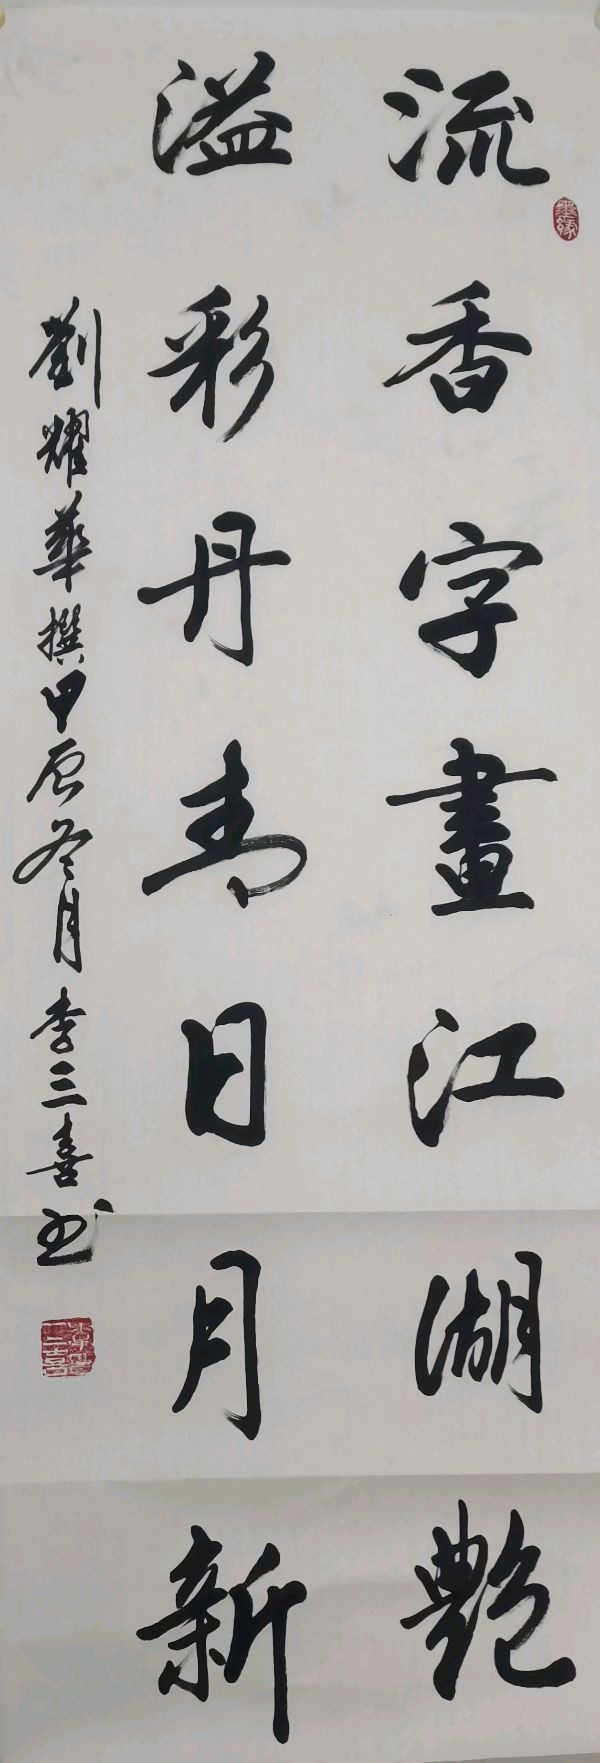 流香字畫江湖艷
溢彩丹青日月新
劉耀華撰甲辰冬月李三喜书
墨缘